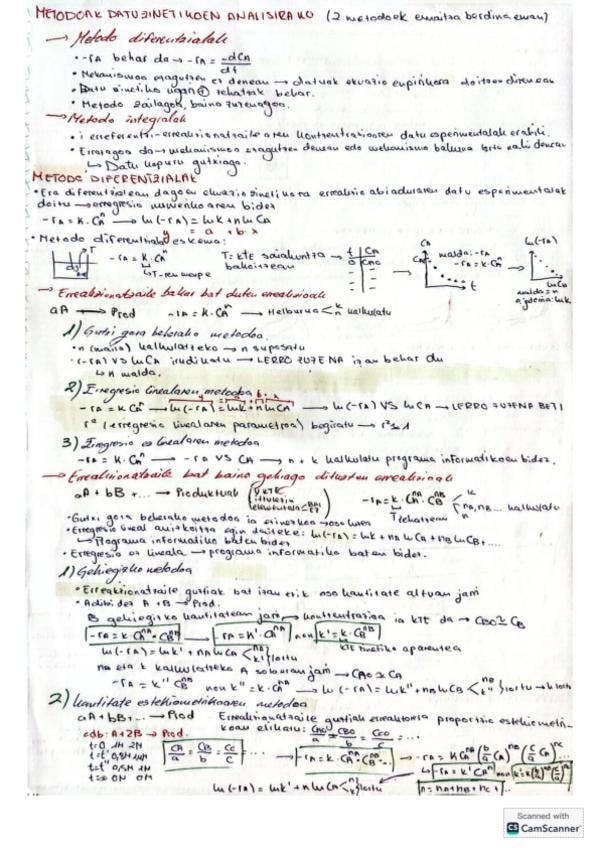 METODOAK DATU ZINETIKOEN ANALISIRAKO (2 metodoek emaitza berdina eman)
→ Metodo diferentzialak
• -rA behar da → -rA = -dCA/dt
• Mekanismoa ezagutzen ez denean → datuak ekuazio enpirikora doitzen direnean
• Datu zinetiko ugari behar.
• Metodo zailagoa, baina zuzenagoa.
→ Metodo integralak
• erreakzionatzaile baten kontzentrazioaren datu esperimentalak erabili.
• Errazagoa da → mekanismoa ezagutzen denean edo mekanismo balioa lortu nahi denean
↳ Datu kopuru gutxiago.
METODO DIFERENTZIALAK
• Era diferentzialean dagoen ekuazio zinetikora erreakzio abiaduraren datu esperimentalak
doitu → erregresio baten bidez
-rA = k·CA^n → ln(-rA) = lnk + n lnCA
y = a + b·x
• Metodo diferentzialaren eskema:
-rA = k·CA^n
T = kte saiakuntza bakoitzean
t CA
0 CA0
CA malda: -rA
-rA = k·CA^n
t
ln(-rA)
lnCA
malda = n
→ Erreakzionatzaile bakar bat duten erreakzioak
aA → Prod -rA = k·CA^n → Helburua < k n kalkulatu
1) Gutxi gora beherako metodoa
• n (malda) kalkulatzeko → n suposatu
• (-rA) VS lnCA irudikatu → LERRO ZUZENA izan behar du
↳ n malda.
2) Erregresio linealaren metodoa
-rA = k CA^n → ln(-rA) = lnk + n lnCA → ln(-rA) VS lnCA → LERRO ZUZENA BETI
r² (erregresio linealaren parametroa) begiratu → r² ≅ 1
3) Erregresio ez linealaren metodoa
-rA = k·CA^n → -rA VS CA → n + k kalkulatu programa informatikoen bidez.
→ Erreakzionatzaile bat baino gehiago dituzten erreakzioak
aA + bB + ... → Produktuak -rA = k·CA^nA·CB^nB < k nA, nB... kalkulatu
• Gutxi gora beherako metodoa ia ezinezkoa → oso luzea
• Erregresio lineal anitzkoitza egin daiteke: ln(-rA) = lnk + nA lnCA + nB lnCB + ...
↳ Programa informatiko baten bidez
• Erregresio ez lineala → programa informatiko baten bidez.
1) Gehiegizko metodoa
• Erreakzionatzaile guztiak bat izan ezik oso kantitate altuan jarri
• Adibidez A + B → Prod.
B gehiegizko kantitatean jarri → kontzentrazioa ia kte da → CB0 ≅ CB
-rA = k·CA^nA·CB^nB → -rA = k'·CA^nA non k' = k·CB^nB
ln(-rA) = lnk' + nA lnCA < nA k' lortu kte zinetiko aparentea
nB eta k kalkulatzeko A soberan jarri → CA0 ≅ CA
-rA = k''·CB^nB non k'' = k·CA^nA → ln(-rA) = lnk'' + nB lnCB < nB k'' lortu → k lortu
2) kantitate estekiometrikoaren metodoa
aA + bB + ... → Prod Erreakzionatzaile guztiak erreaktorera proportzio estekiometrikoan elikatu: CA0/a = CB0/b = CC0/c = ...
adb: A + 2B → Prod.
t=0 1M 2M
t=t'
t=t''
t=∞ 0M 0M
CA/a = CB/b = CC/c = ... → -rA = k·CA^nA·CB^nB... → -rA = k CA^nA (b/a CA)^nB (c/a CA)^nC ...
↳ -rA = k' CA^n non k' = k (b/a)^nB (c/a)^nC
ln(-rA) = lnk' + n lnCA < n k' lortu n = nA + nB + nC + ...
Scanned with
CS CamScanner